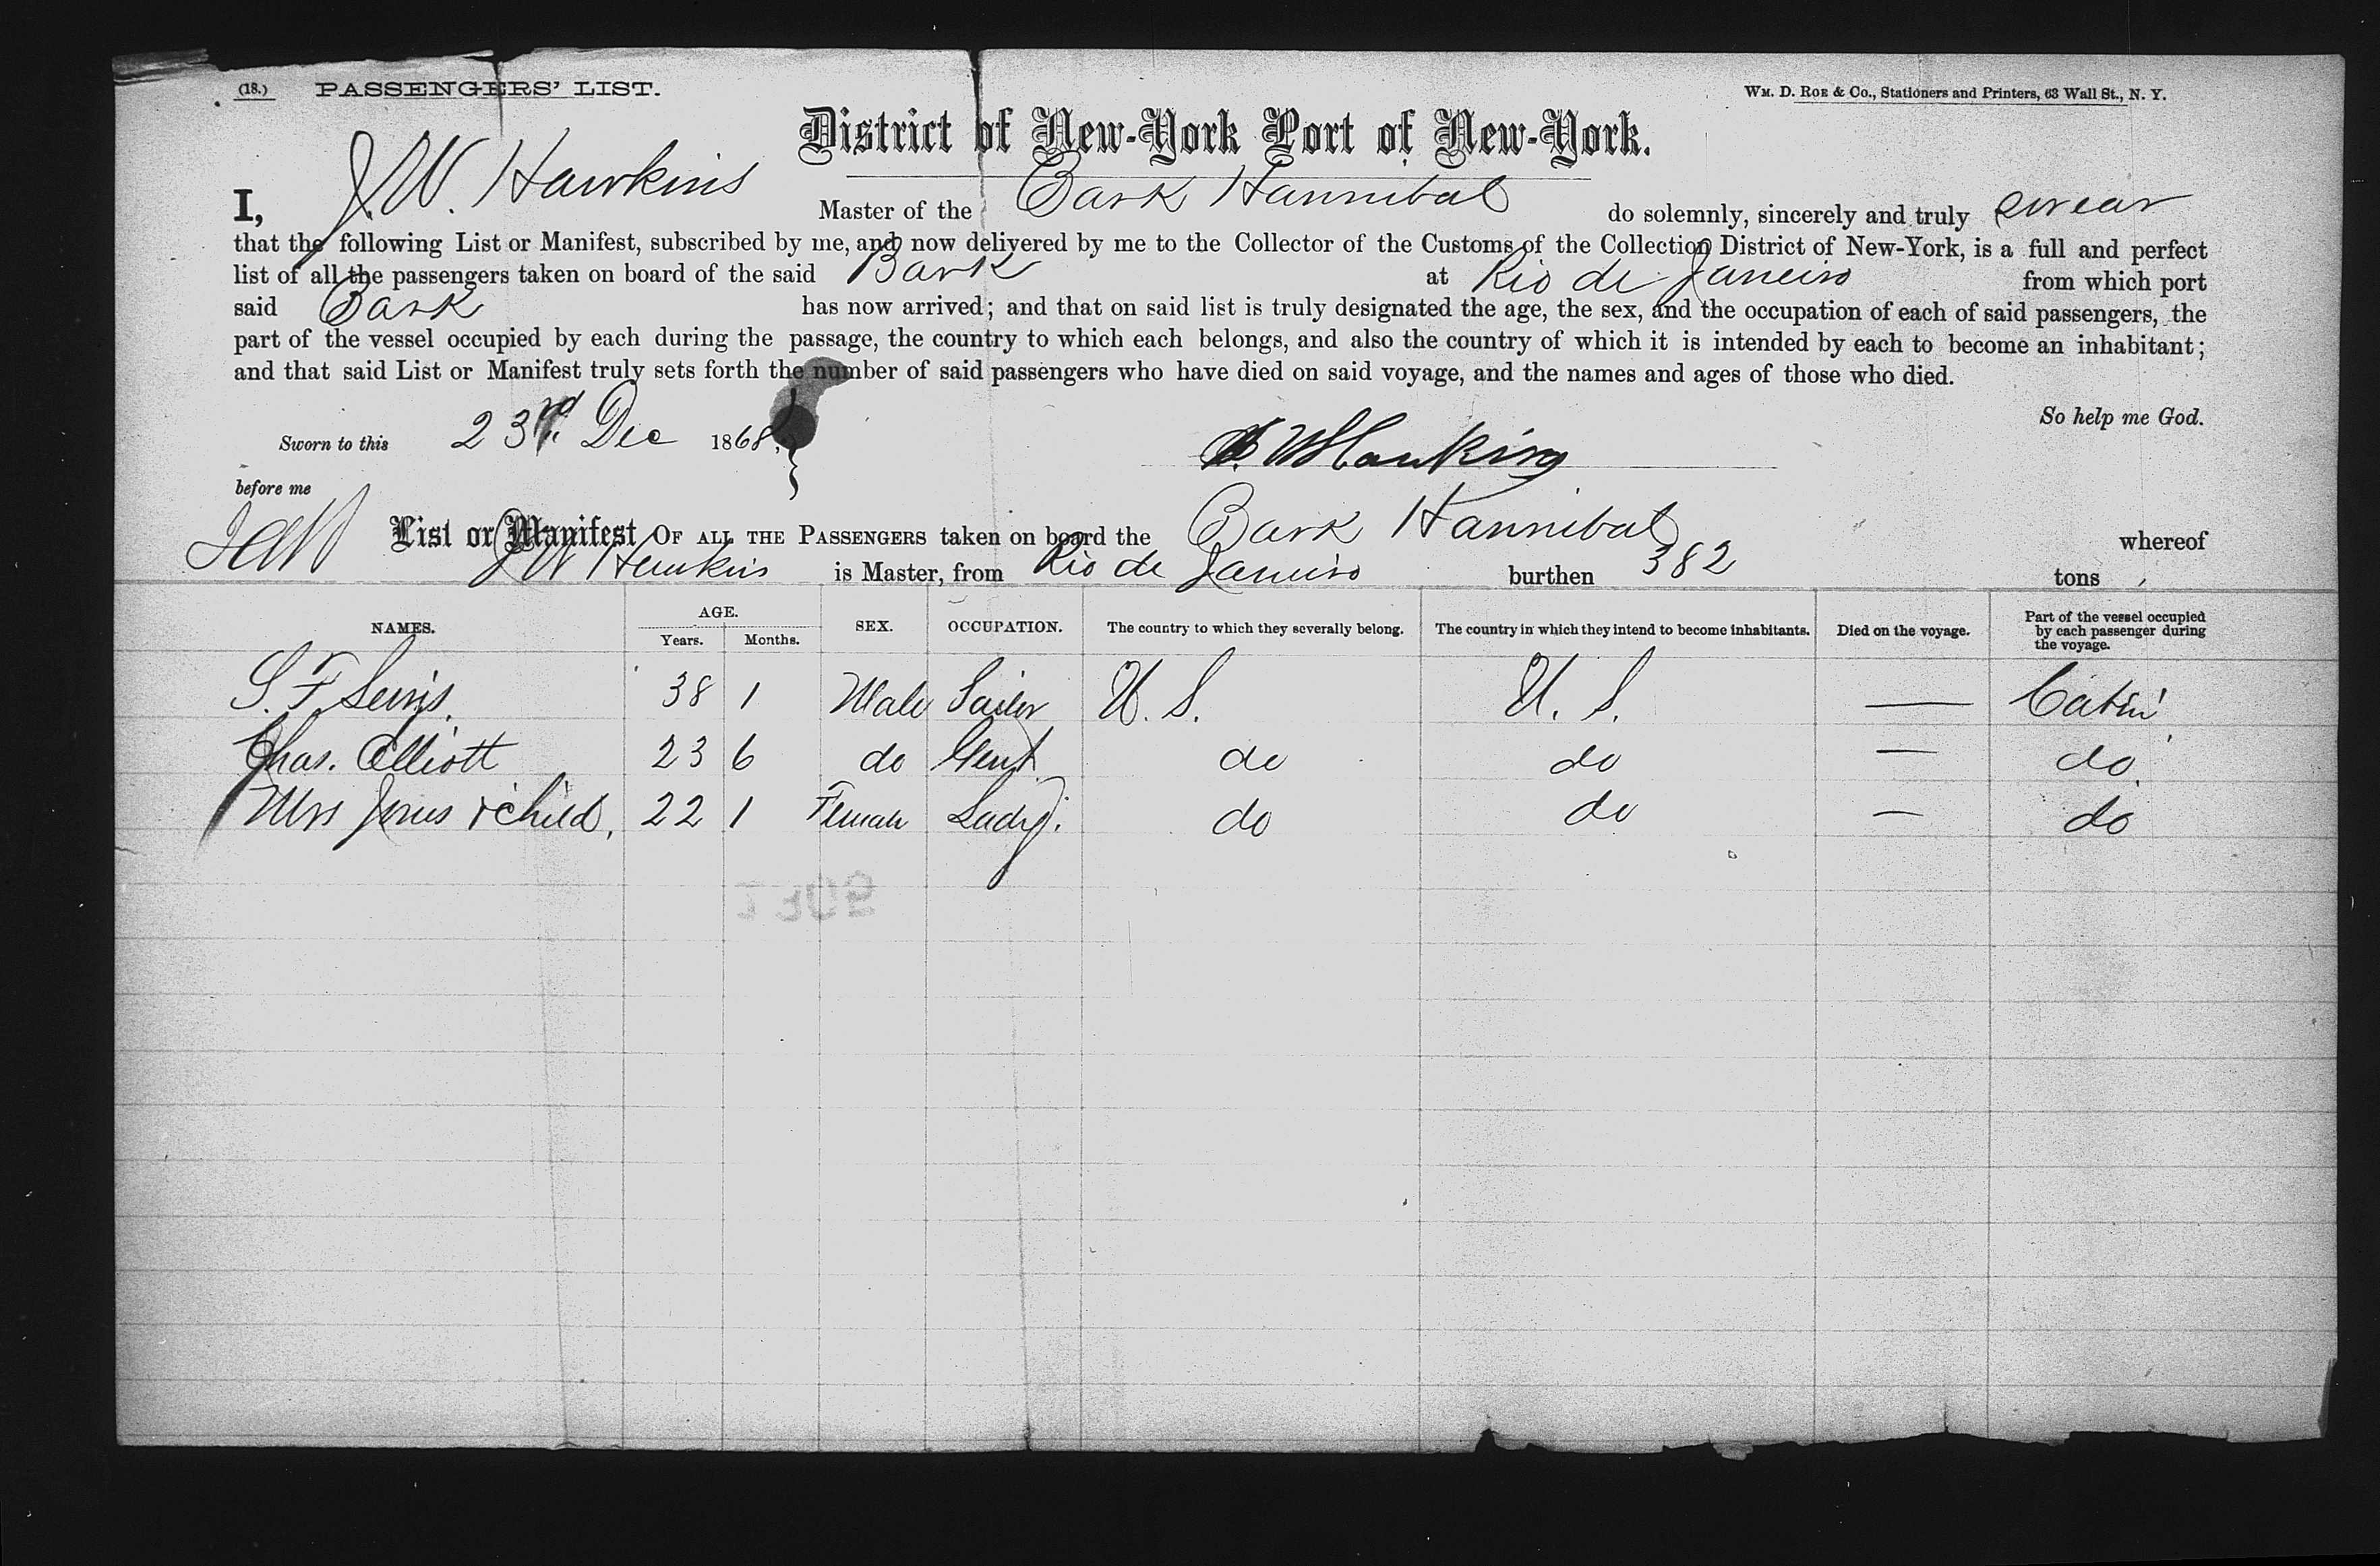 (18.) PASSENGERS' LIST.
WM. D. ROE & Co., Stationers and Printers, 63 Wall St., N. Y.
District of New-York Port of New-York.
I, J. W. Hawkins Master of the Bark Hannibal do solemnly, sincerely and truly swear
that the following List or Manifest, subscribed by me, and now delivered by me to the Collector of the Customs of the Collection District of New-York, is a full and perfect
list of all the passengers taken on board of the said Bark at Rio de Janeiro from which port
said Bark has now arrived; and that on said list is truly designated the age, the sex, and the occupation of each of said passengers, the
part of the vessel occupied by each during the passage, the country to which each belongs, and also the country of which it is intended by each to become an inhabitant;
and that said List or Manifest truly sets forth the number of said passengers who have died on said voyage, and the names and ages of those who died.
So help me God.
Sworn to this 23rd Dec 1868
J. W. Hawkins
before me
List or Manifest OF ALL THE PASSENGERS taken on board the Bark Hannibal whereof
J W Hawkins is Master, from Rio de Janeiro burthen 382 tons
NAMES. AGE. Years. Months. SEX. OCCUPATION. The country to which they severally belong. The country in which they intend to become inhabitants. Died on the voyage. Part of the vessel occupied by each passenger during the voyage.
S. F. 38 1 Male Sailor U. S. U. S. — Cabin
Chas. Elliott 23 6 do Gent do do — do
Mrs Jones & child, 22 1 Female Lady. do do — do